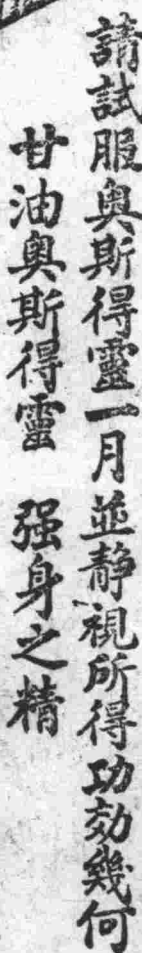 請試服奥斯得靈一月並靜視所得功効幾何
甘油奥斯得靈 强身之精